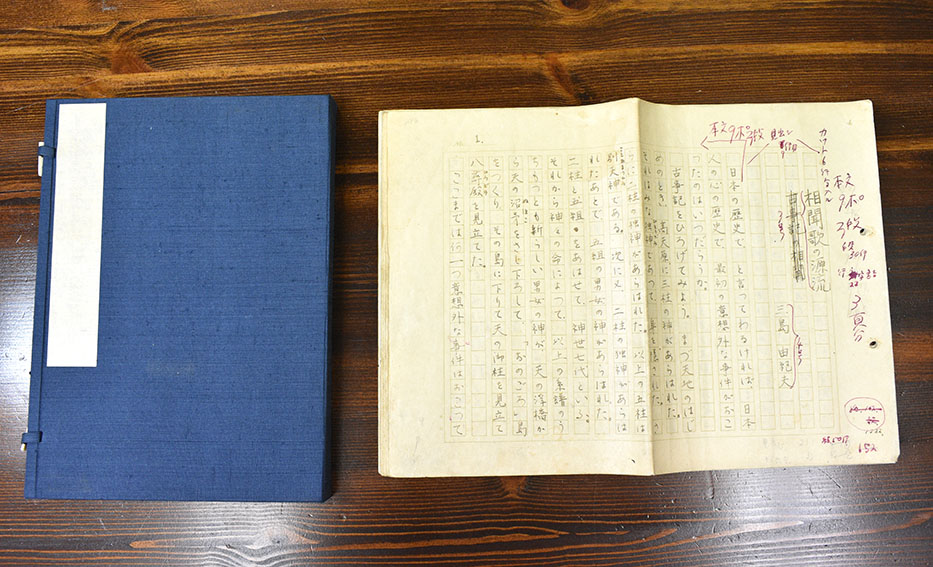 本文
9ポ
3段
3頁分
見出し
本文9ポ3段
相聞歌の源流
三島 由紀夫
日本の歴史で、と言つてわるければ、日本
人の心の歴史で、最初の意想外な事件がおこ
つたのはいつだらうか。
古事記をひろげてみよう。まづ天地のはじ
めのとき、高天原に三柱の神があらはれた。
それはみな独神であつて、身を隠された。
に二柱の独神があらはれた。以上の五柱は
別天神である。次に又、二柱の独神があらは
れたあとで、五組の男女の神があらはれた。
二柱と五組をあはせて、神世七代といふ。
それから神々の命によつて、以上の系譜のう
ちもつとも新らしい男女の神が、天の浮橋か
ら天の沼矛をさし下ろして、おのごろ島
をつくり、その島に下りて天の御柱を見立て
八尋殿を見立てた。
ここまでは何一つ意想外な事件はおこつて
1.
152